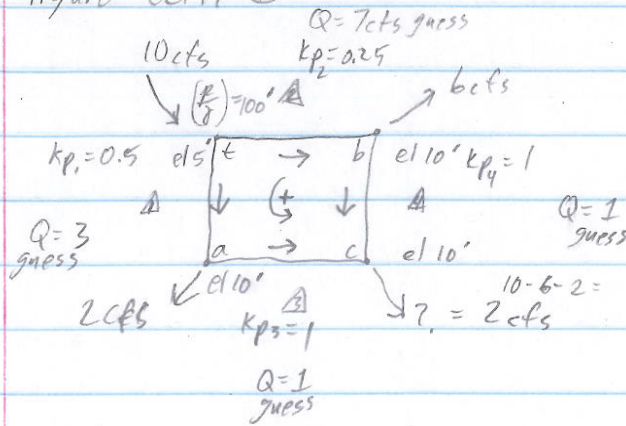 Q=7cfs guess
10cfs
kp2=0.25
(P/γ)=100' 2
6cfs
kp1=0.5
el5'
t
→
b
el 10'
kp4=1
1
(+
4
Q=3
guess
Q=1
guess
a
→
c
el 10'
el 10'
2cfs
3
kp3=1
10-6-2=
? = 2cfs
Q=1
guess